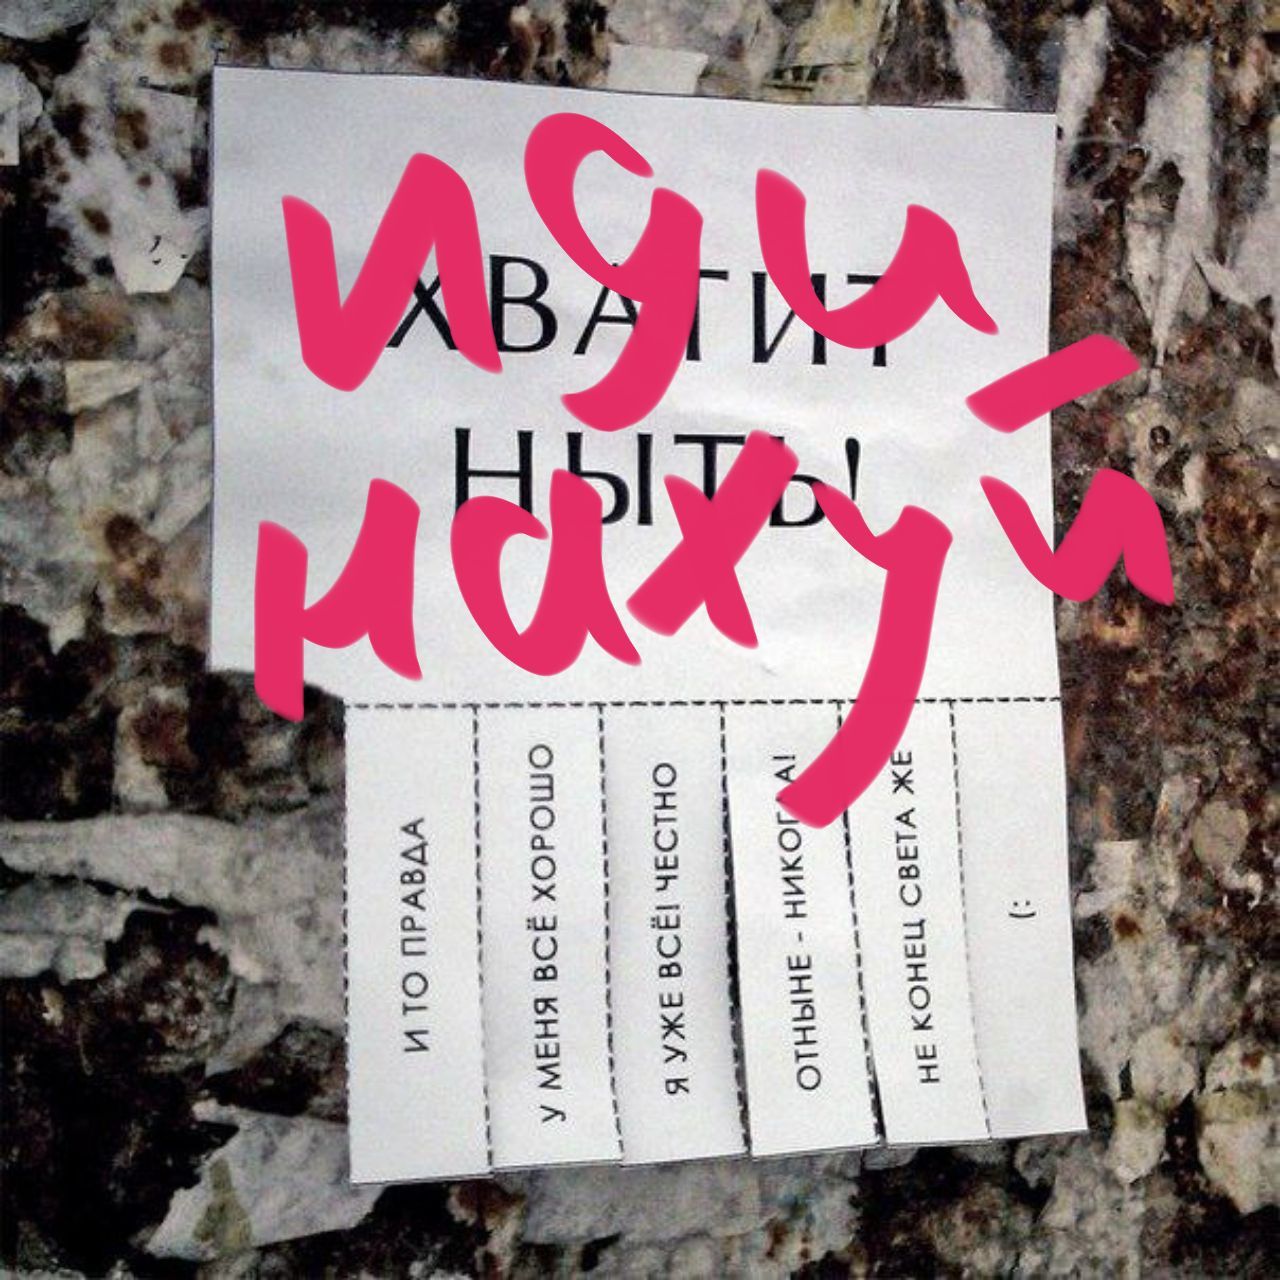 иди
нахуй
ХВАТИТ
НЫТЬ!
И ТО ПРАВДА
У МЕНЯ ВСЁ ХОРОШО
Я УЖЕ ВСЁ! ЧЕСТНО
ОТНЫНЕ - НИКОГДА!
НЕ КОНЕЦ СВЕТА ЖЕ
(: